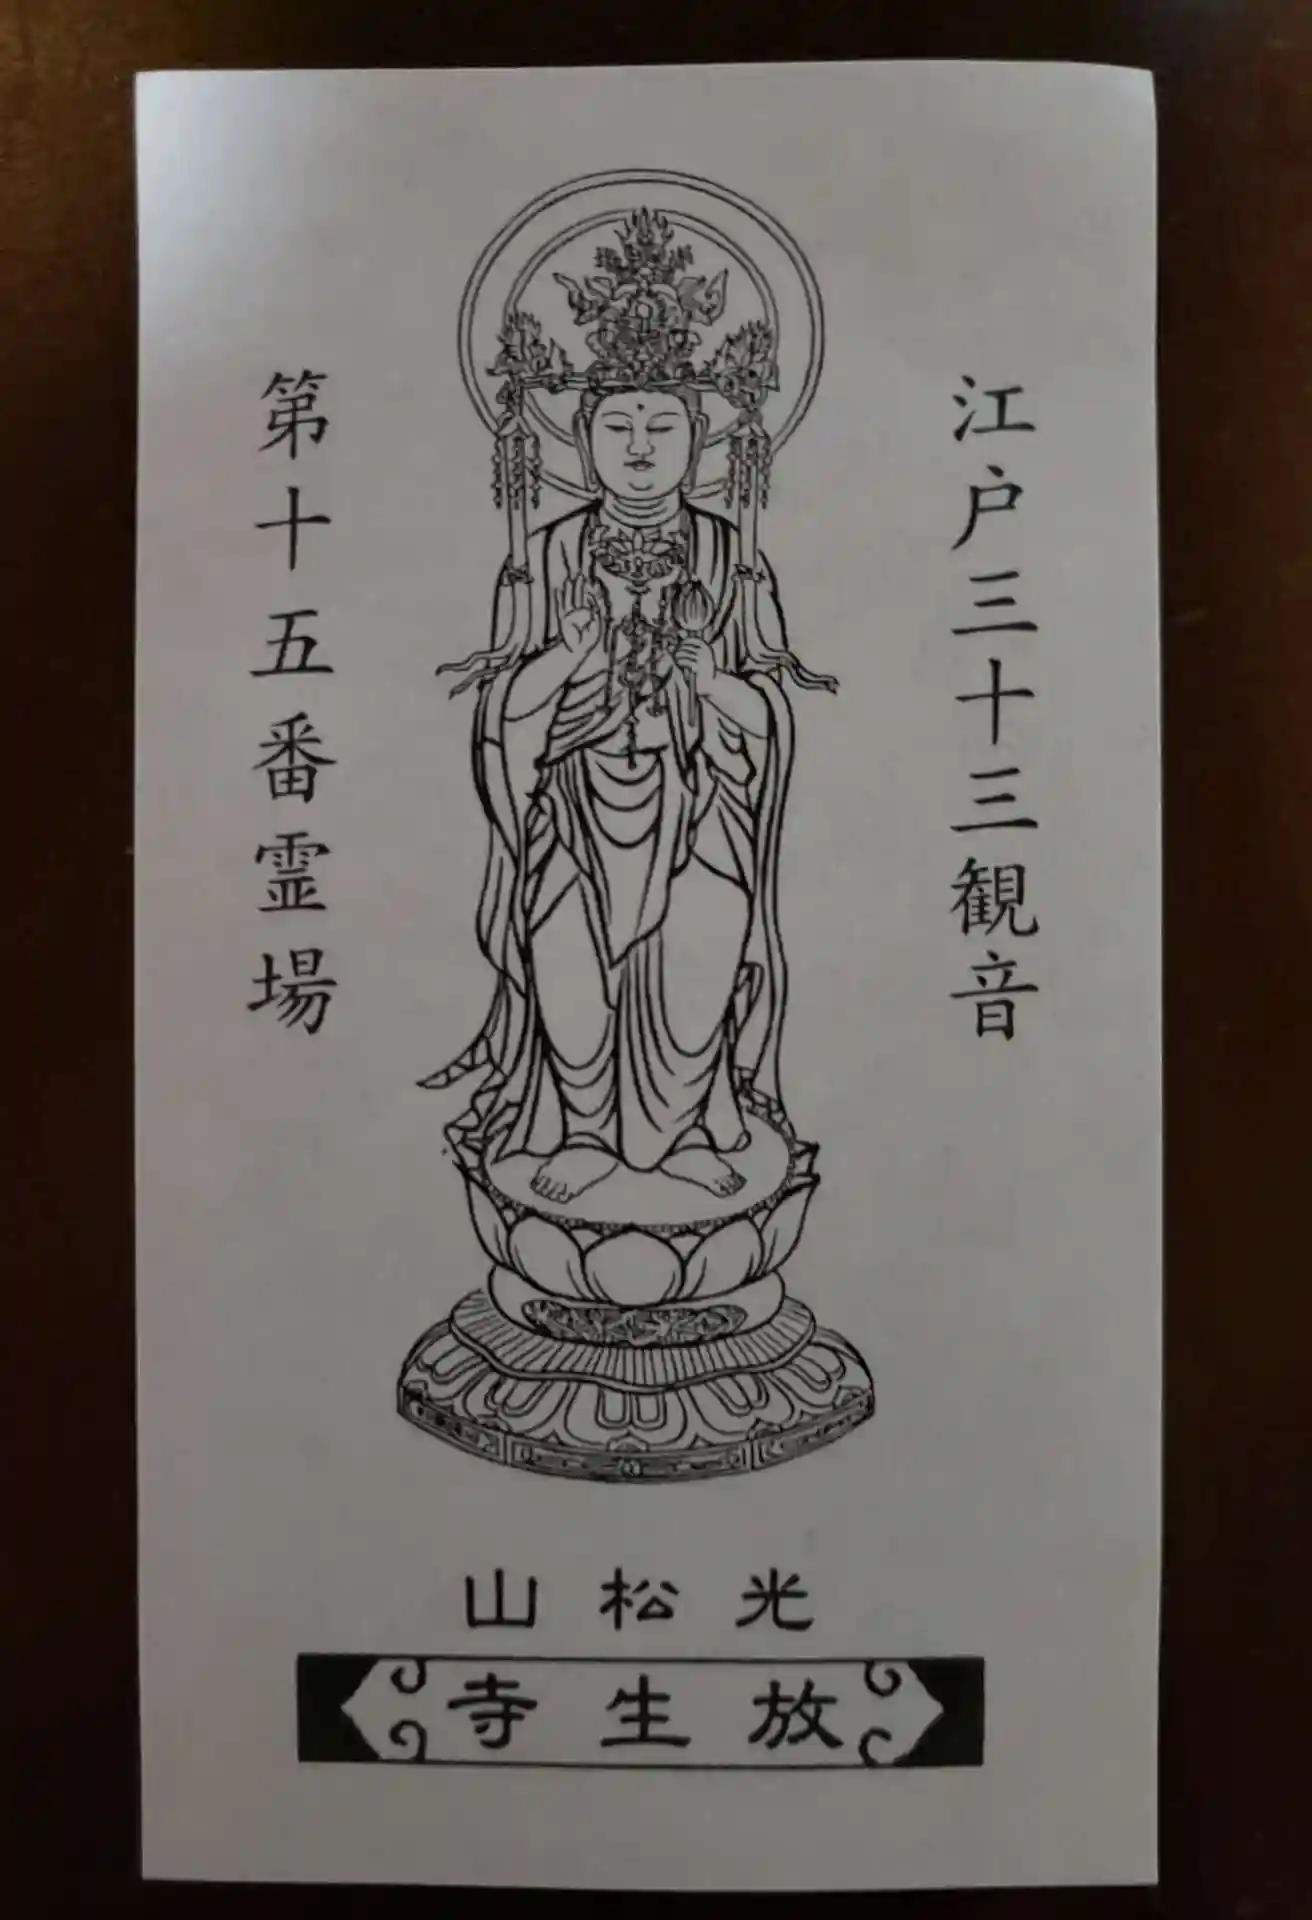 江戸三十三観音
第十五番霊場
光松山
放生寺